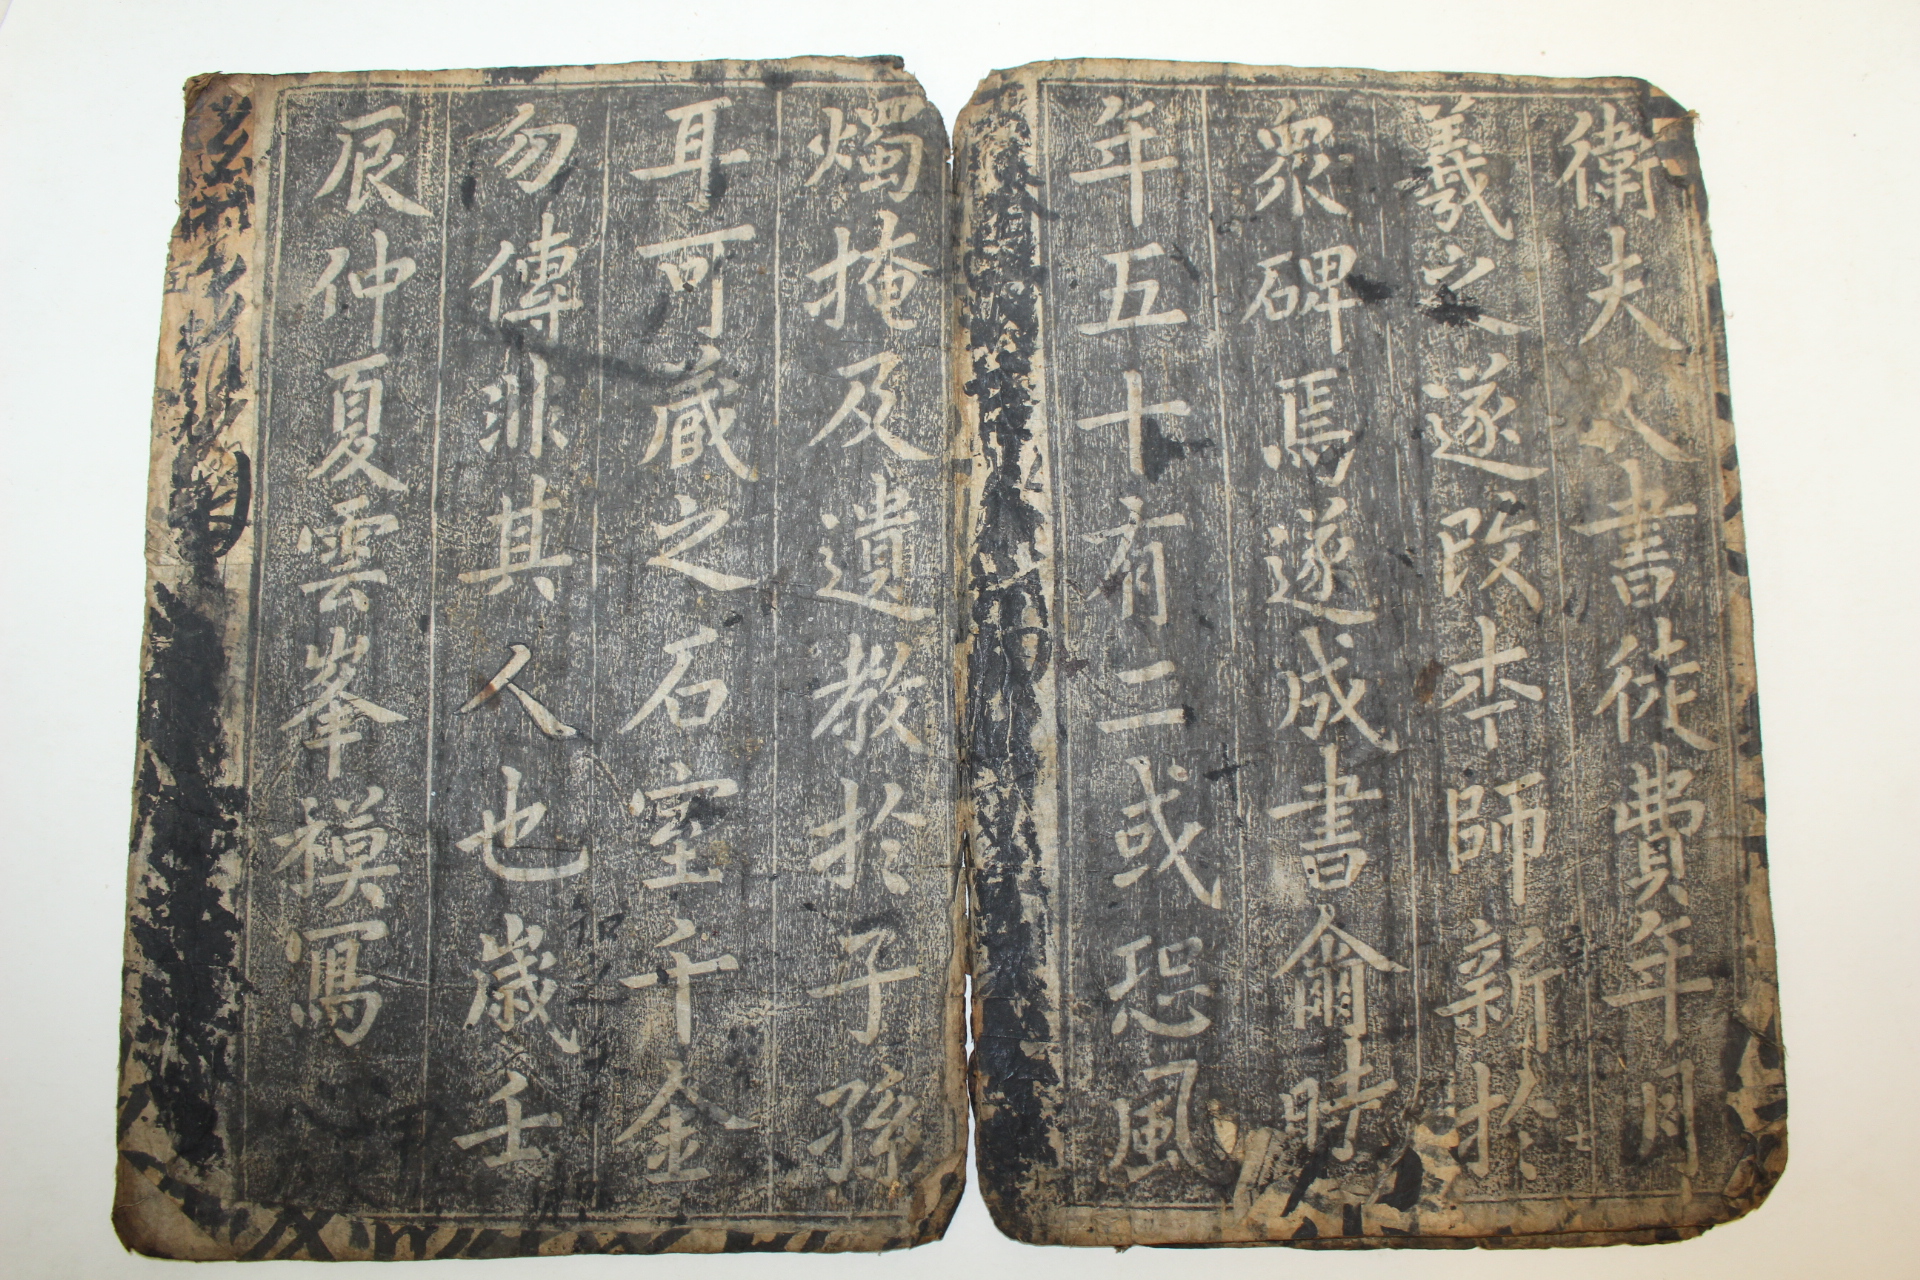 衛夫人書徒費年月
羲之遂改本師新於
衆碑焉遂成書爾時
年五十有二或恐風
燭掩及遺教於子孫
耳可蔵之石室千金
勿傳非其人也歳壬
辰仲夏雲峯模寫